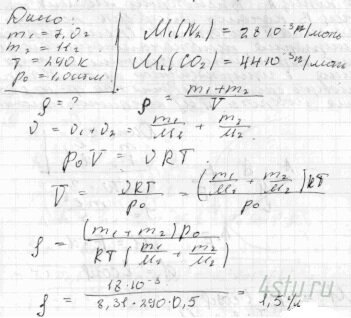 Дано:
m₁ = 7,0 г
m₂ = 11 г
T = 290 К
p₀ = 1,0 атм
M₁(N₂) = 28·10⁻³ кг/моль
M₂(CO₂) = 44·10⁻³ кг/моль
ρ = ?
ρ = (m₁+m₂)/V
ν = ν₁+ν₂ = m₁/M₁ + m₂/M₂
p₀V = νRT
V = νRT/p₀ = (m₁/M₁ + m₂/M₂)RT/p₀
ρ = (m₁+m₂)p₀/(RT(m₁/M₁ + m₂/M₂))
ρ = 18·10⁻³/(8,31·290·0,5) = 1,5 г/л
4stu.ru